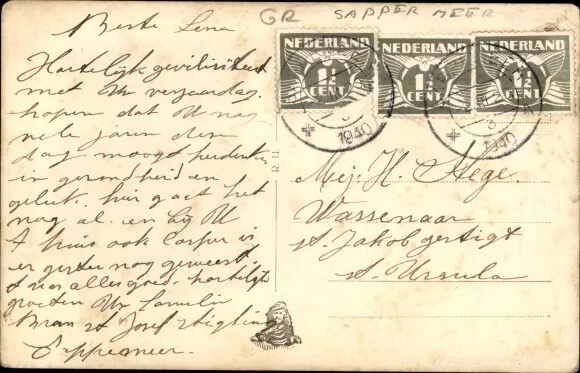 Beste Lena
Hartelijk gefeliciteerd
met Uw verjaardag.
hopen dat U nog
vele jaren dien
dag moogt herdenken
in gezondheid en
geluk. hier gaat het
nog al. en bij U
thuis ook Casper is
er gister nog geweest.
was alles goed. hartelijke
groeten Uw
Bram st Josef stigting
Sappemeer.
GR SAPPERMEER
NEDERLAND
1½
CENT
NEDERLAND
1½
CENT
NEDERLAND
½
CENT
1940
1940
R. U.
Mej. H. Stege.
Wassenaar
st. Jakob gestigt
st. Ursula